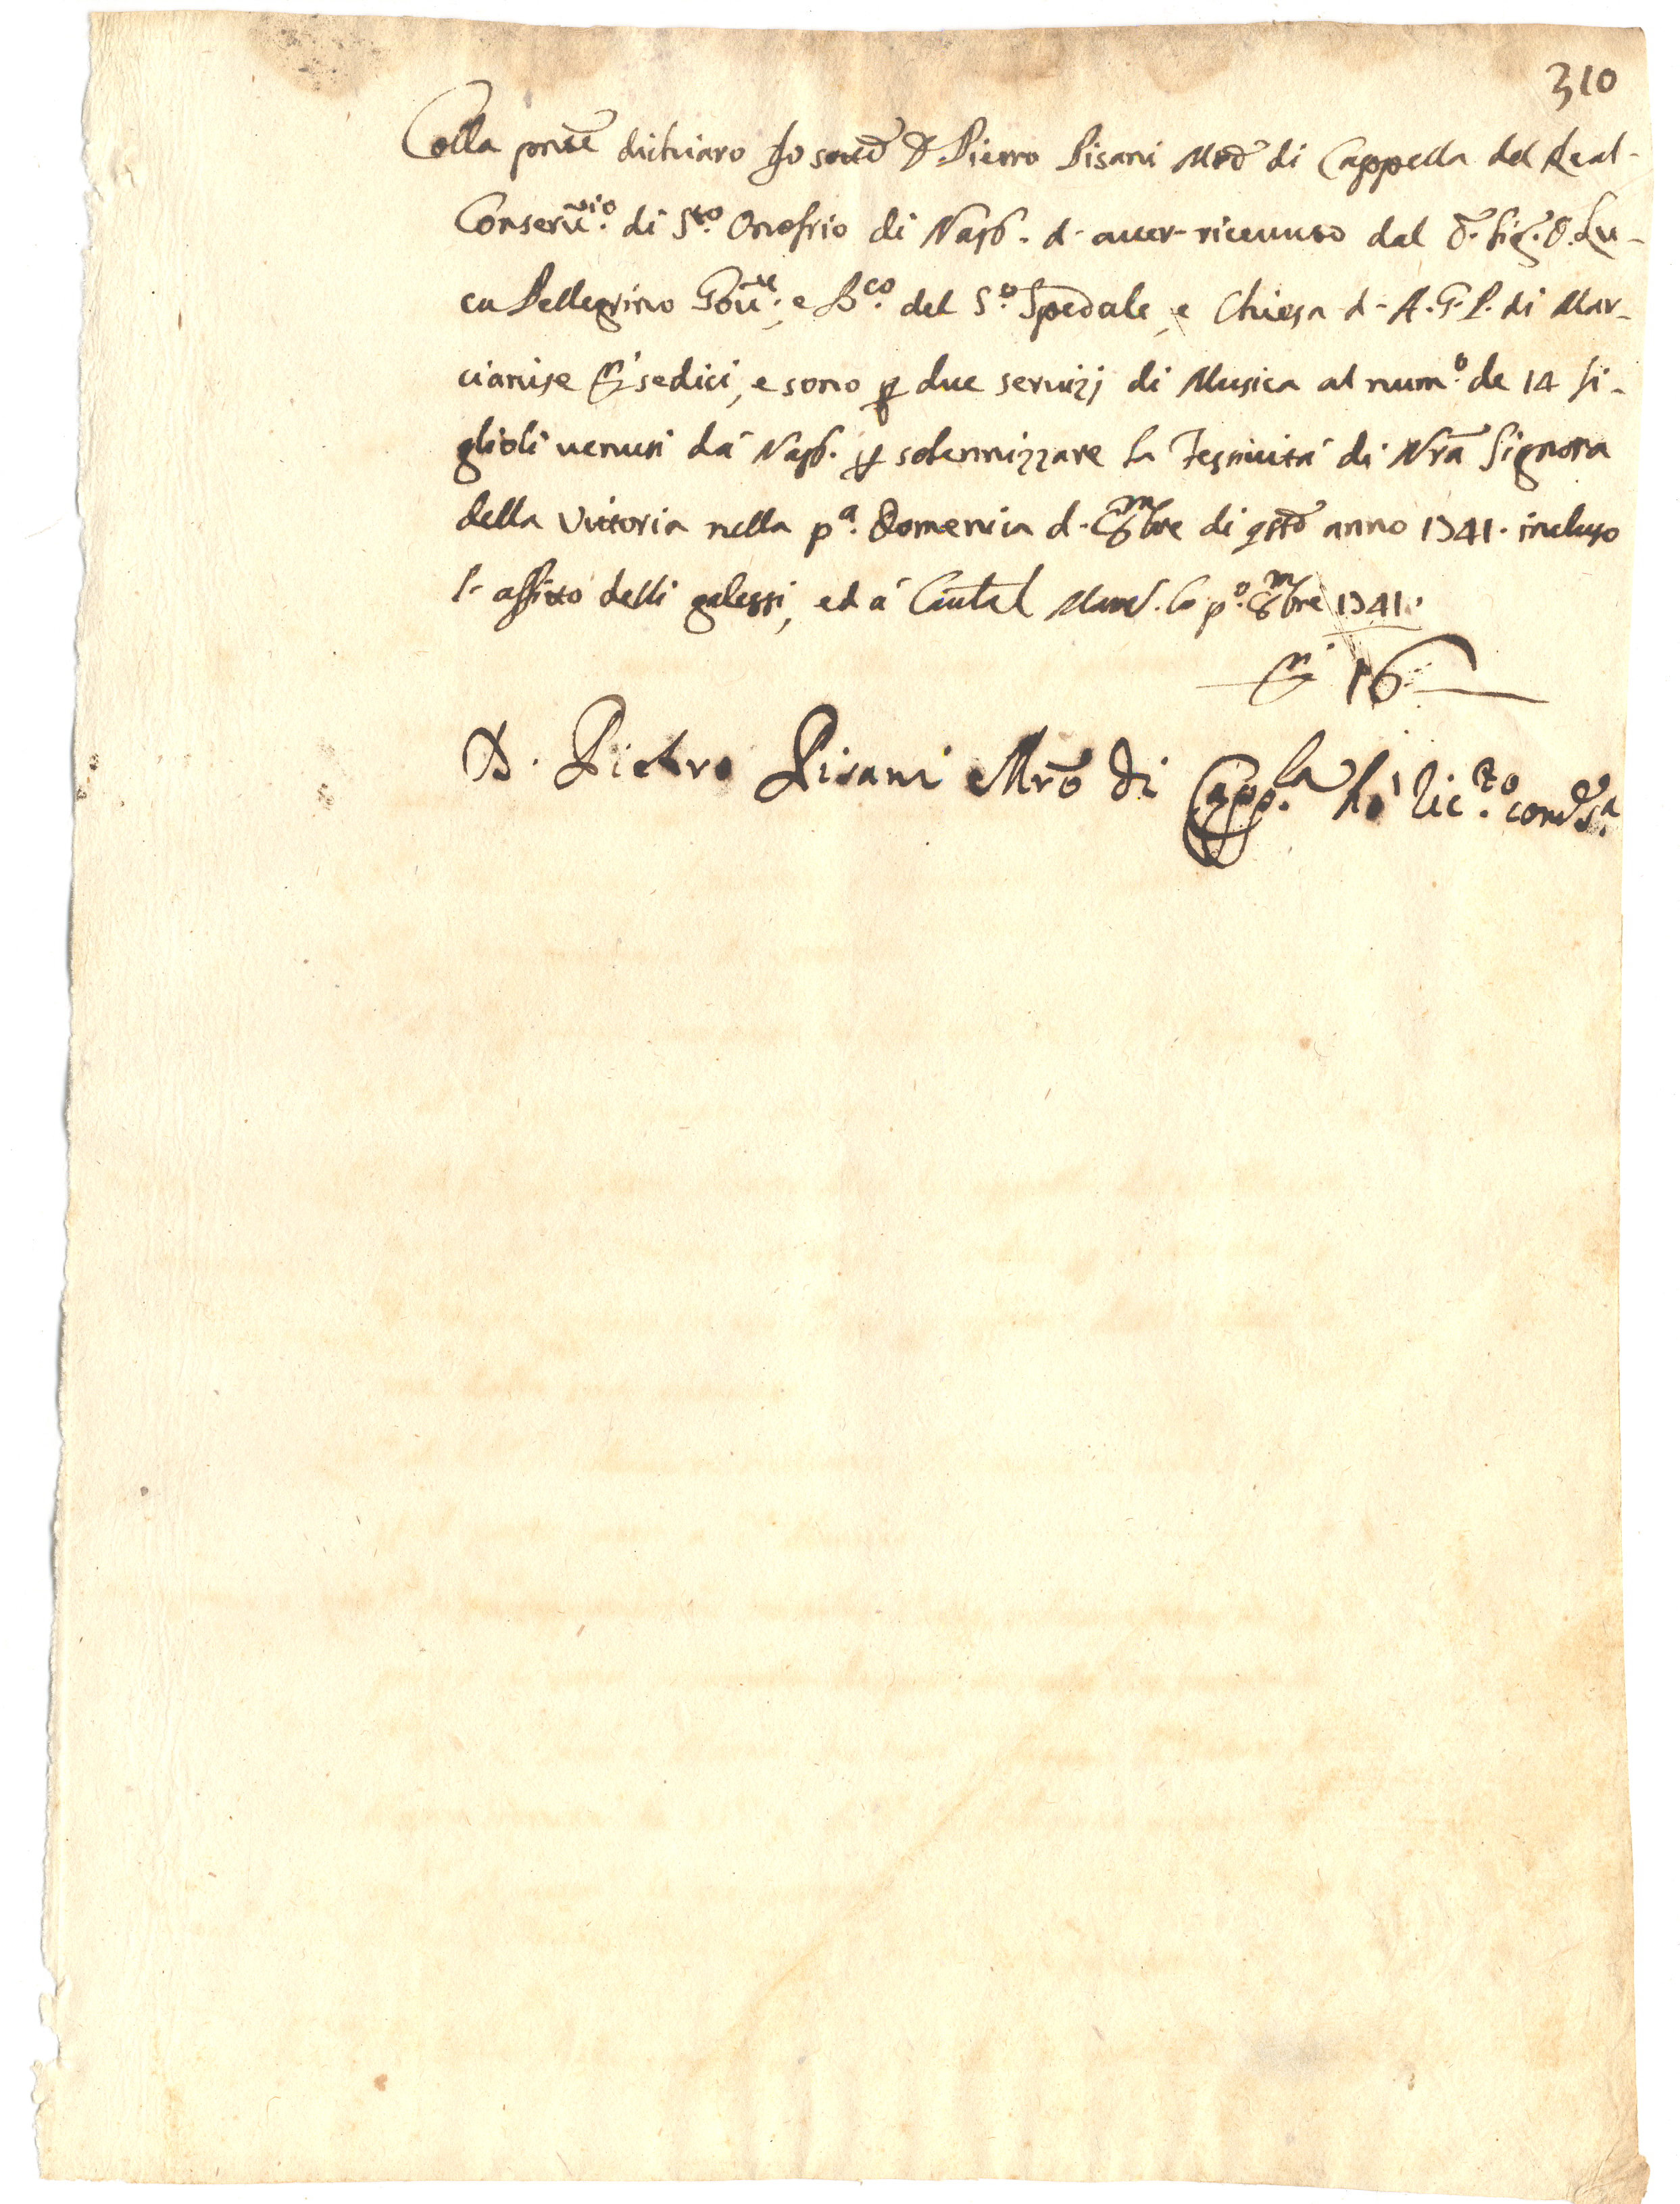 310
Colla pnte dichiaro Io sotto D. Pietro Pisani Mro di Cappella del Real
Conseru.rio di S.to Onofrio di Nap. d'auer riceuuto dal Sig. D. Lu-
ca Pellegrino Gou.re, e del S.o Spedale, e Chiesa d' A.G.P. di Mar-
cianise sedici, e sono p due seruizj di Musica al num.o de 14 fi-
glioli uenuti dà Nap. p solennizzare la Festiuità di Nra Signora
della Vittoria nella p.a Domenica d' 8mbre di qsto anno 1741. incluso
l'affitto delli galessi, ed à Cautel Marc. lo p.o 8mbre 1741.
16
D. Pietro Pisani Mro di Capp.la hò ric.to come s.a